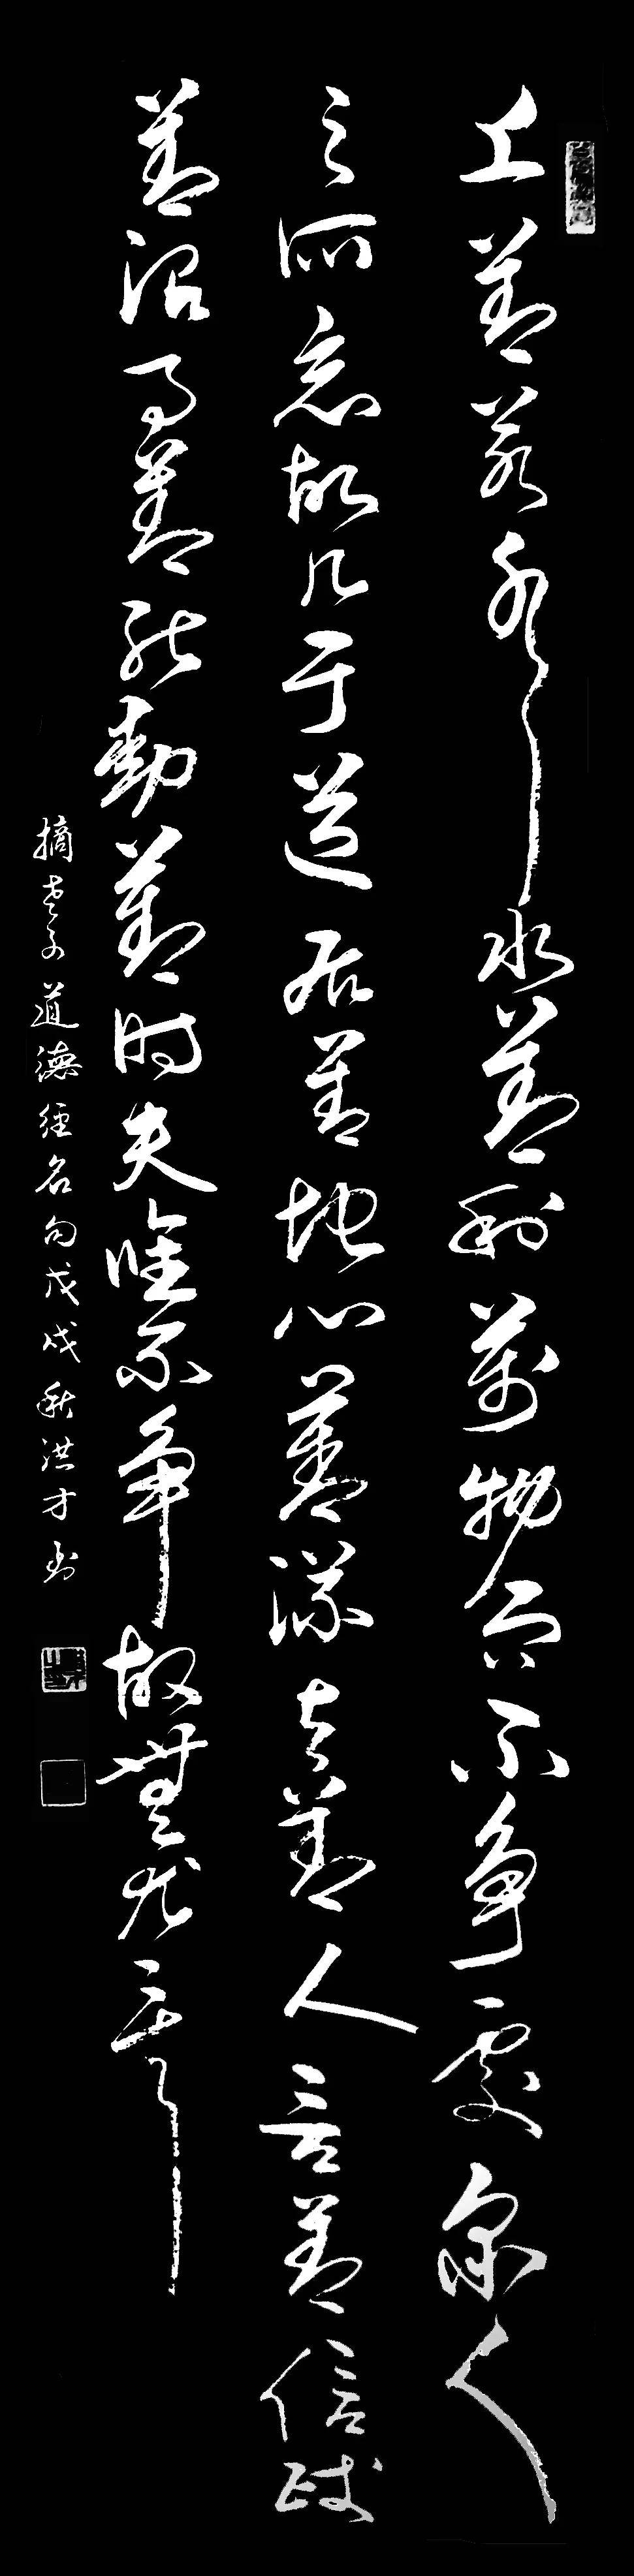 上善若水水善利萬物而不争處衆人
之所恶故几于道居善地心善渊与善人言善信政
善治事善能動善时夫唯不争故無尤
摘老子道德經名句戊戌秋洪才书